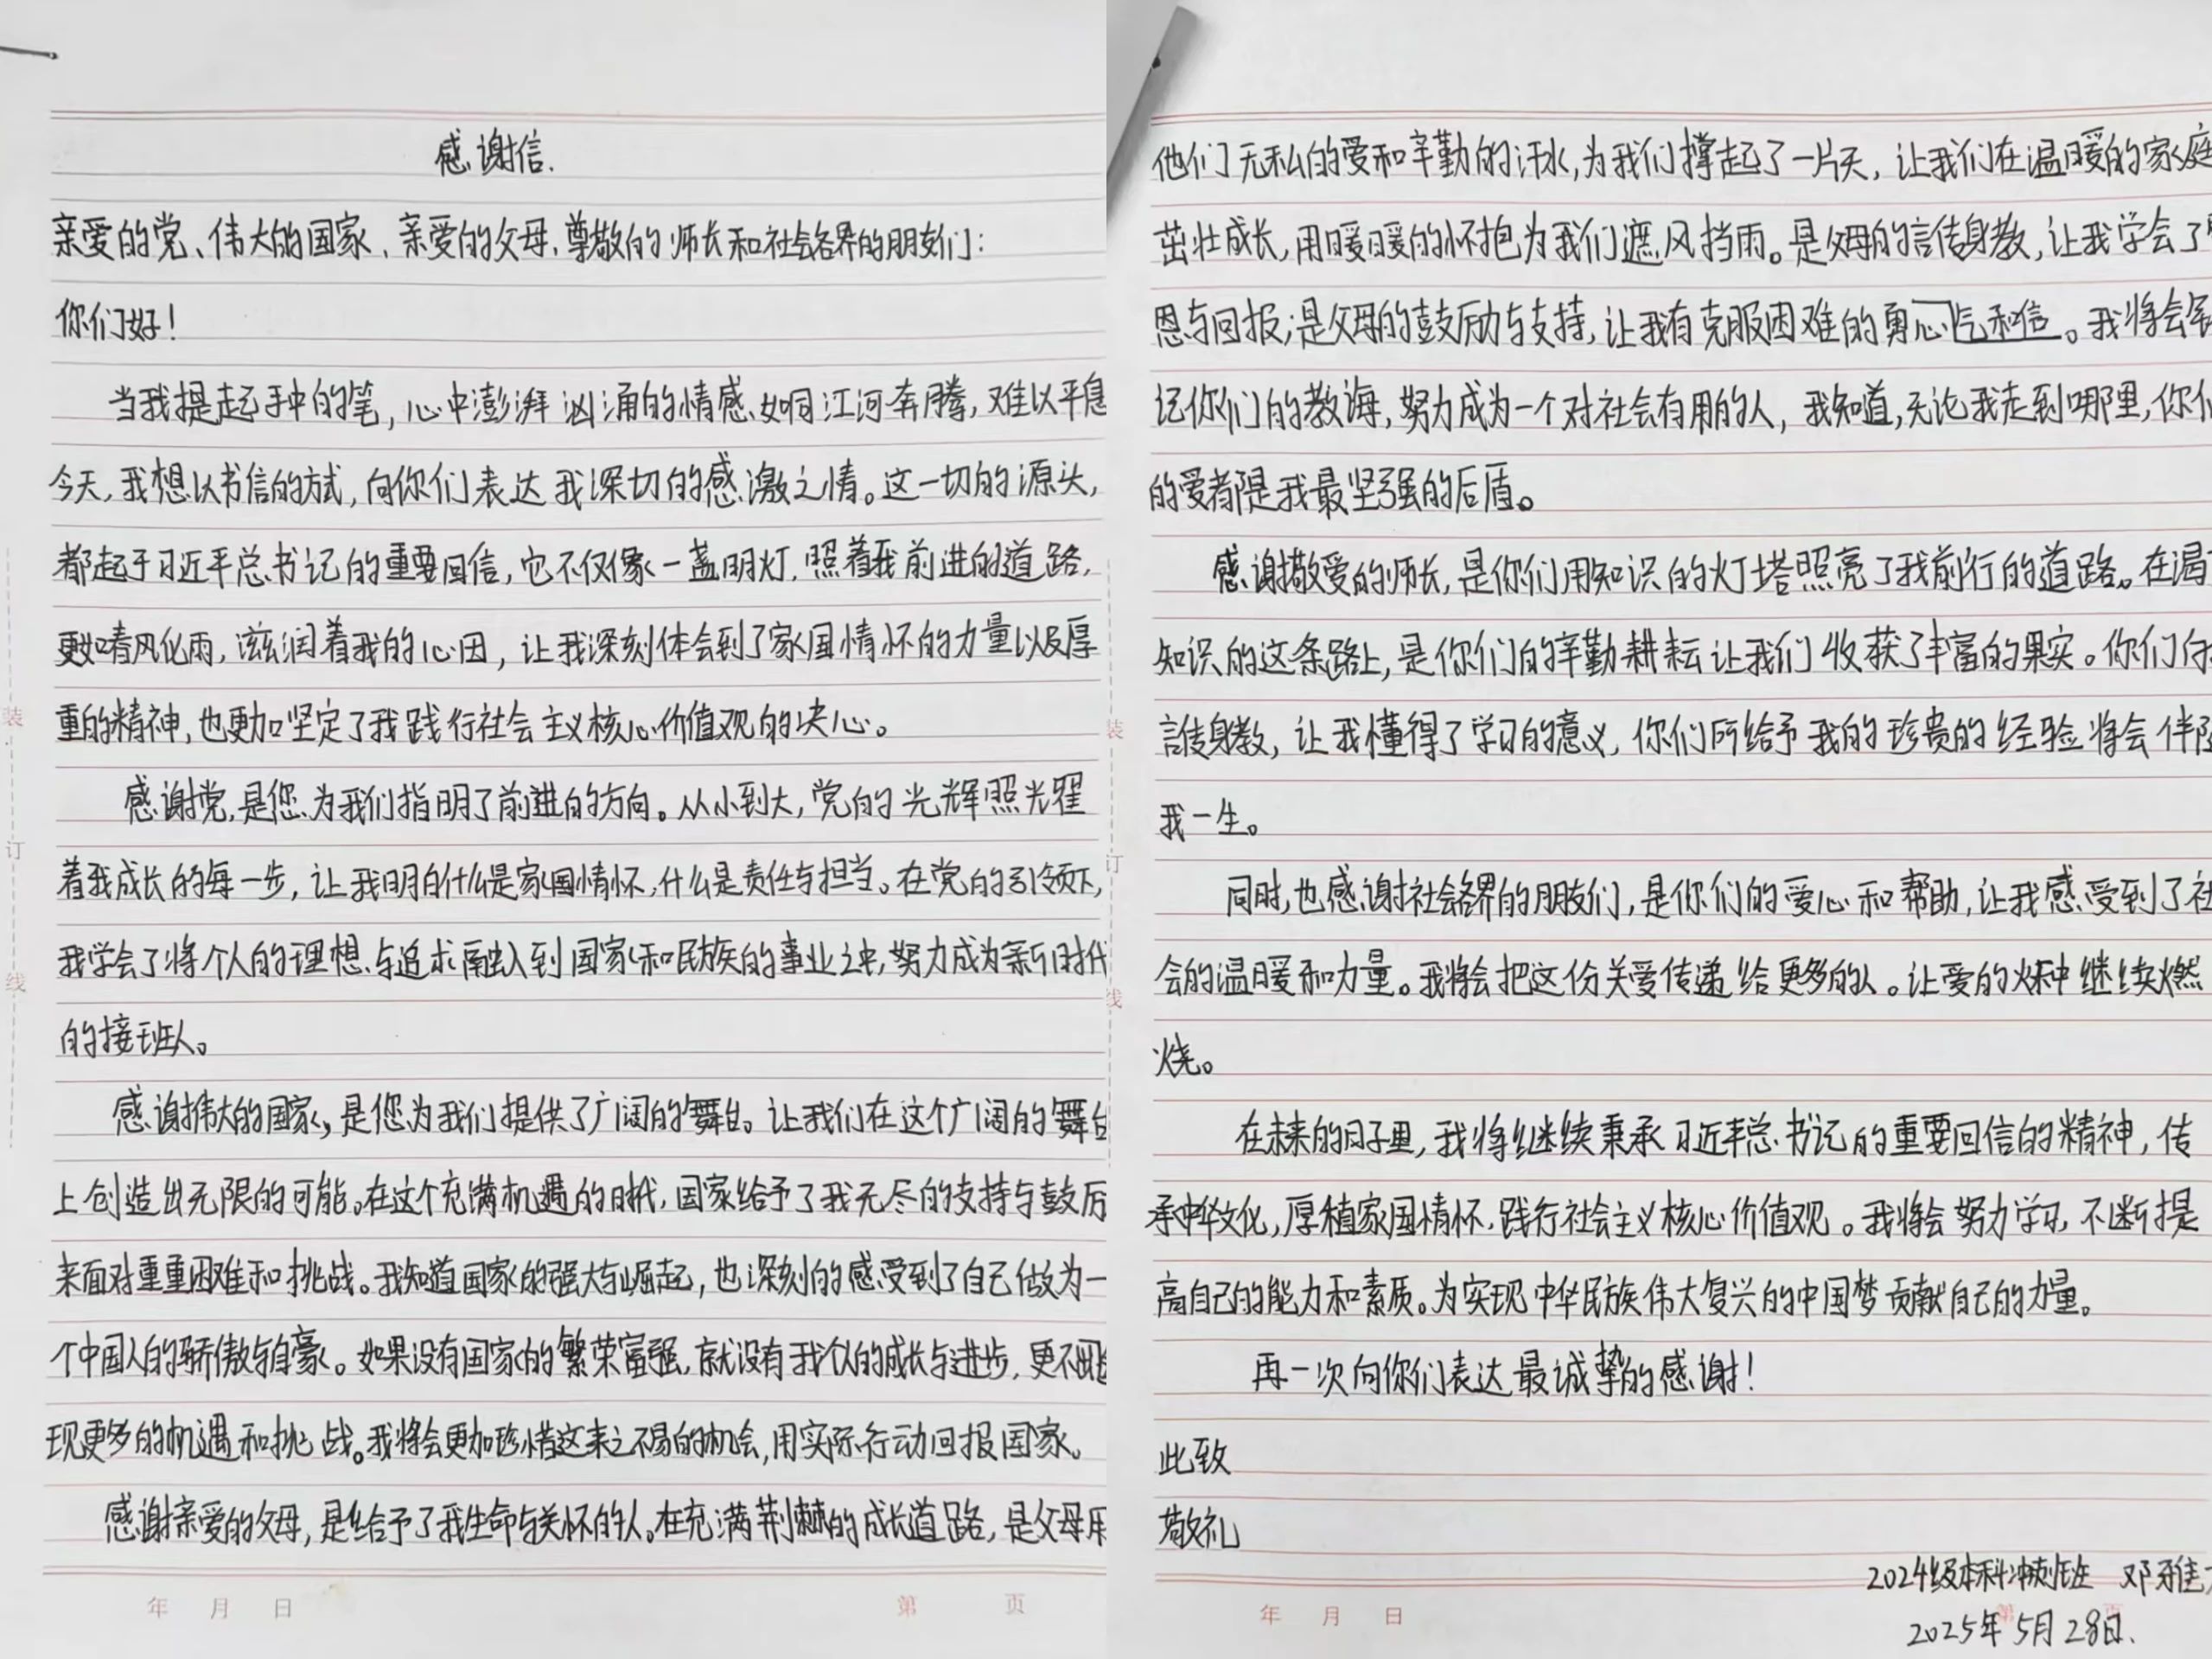 感谢信.
亲爱的党、伟大的国家、亲爱的父母、尊敬的师长和社会各界的朋友们:
你们好!
当我提起手中的笔,心中澎湃汹涌的情感如同江河奔腾,难以平息
今天,我想以书信的方式,向你们表达我深切的感激之情。这一切的源头,
都起于习近平总书记的重要回信,它不仅像一盏明灯,照着我前进的道路,
更如春风化雨,滋润着我的心田,让我深刻体会到了家国情怀的力量以及厚
重的精神,也更加坚定了我践行社会主义核心价值观的决心。
感谢党,是您为我们指明了前进的方向。从小到大,党的光辉照耀
着我成长的每一步,让我明白什么是家国情怀,什么是责任与担当。在党的引领下,
我学会了将个人的理想与追求融入到国家和民族的事业之中,努力成为新时代
的接班人。
感谢伟大的国家,是您为我们提供了广阔的舞台。让我们在这个广阔的舞台
上创造出无限的可能。在这个充满机遇的时代,国家给予了我无尽的支持与鼓厉
来面对重重困难和挑战。我知道国家的强大与崛起,也深刻的感受到了自己做为一
个中国人的骄傲与自豪。如果没有国家的繁荣富强,就没有我个人的成长与进步,更不
现更多的机遇和挑战。我将会更加珍惜这来之不易的机会,用实际行动回报国家。
感谢亲爱的父母,是给予了我生命与关怀的人。在充满荆棘的成长道路,是父母用
他们无私的爱和辛勤的汗水,为我们撑起了一片天,让我们在温暖的家庭
茁壮成长,用暖暖的怀抱为我们遮风挡雨。是父母的言传身教,让我学会了
恩与回报;是父母的鼓励与支持,让我有克服困难的勇心气和信。我将会
记你们的教诲,努力成为一个对社会有用的人,我知道,无论我走到哪里,你们
的爱都是我最坚强的后盾。
感谢敬爱的师长,是你们用知识的灯塔照亮了我前行的道路。在
知识的这条路上,是你们的辛勤耕耘让我们收获了丰富的果实。你们
言传身教,让我懂得了学习的意义,你们所给予我的珍贵的经验将会伴随
我一生。
同时,也感谢社会各界的朋友们,是你们的爱心和帮助,让我感受到了社
会的温暖和力量。我将会把这份关爱传递给更多的人。让爱的火种继续燃
烧。
在未来的日子里,我将继续秉承习近平总书记的重要回信的精神,传
承中华文化,厚植家国情怀,践行社会主义核心价值观。我将会努力学习,不断提
高自己的能力和素质。为实现中华民族伟大复兴的中国梦贡献自己的力量。
再一次向你们表达最诚挚的感谢!
此致
敬礼
2024级本科冲刺班 邓雅
2025年5月28日.
装
订
线
年 月 日
第 页
装
订
线
年 月 日
第 页